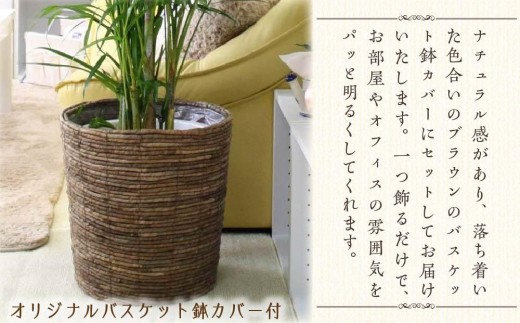 ナチュラル感があり、落ち着い
た色合いのブラウンのバスケッ
ト鉢カバーにセットしてお届け
いたします。一つ飾るだけで、
お部屋やオフィスの雰囲気を
パッと明るくしてくれます。
オリジナルバスケット鉢カバー付